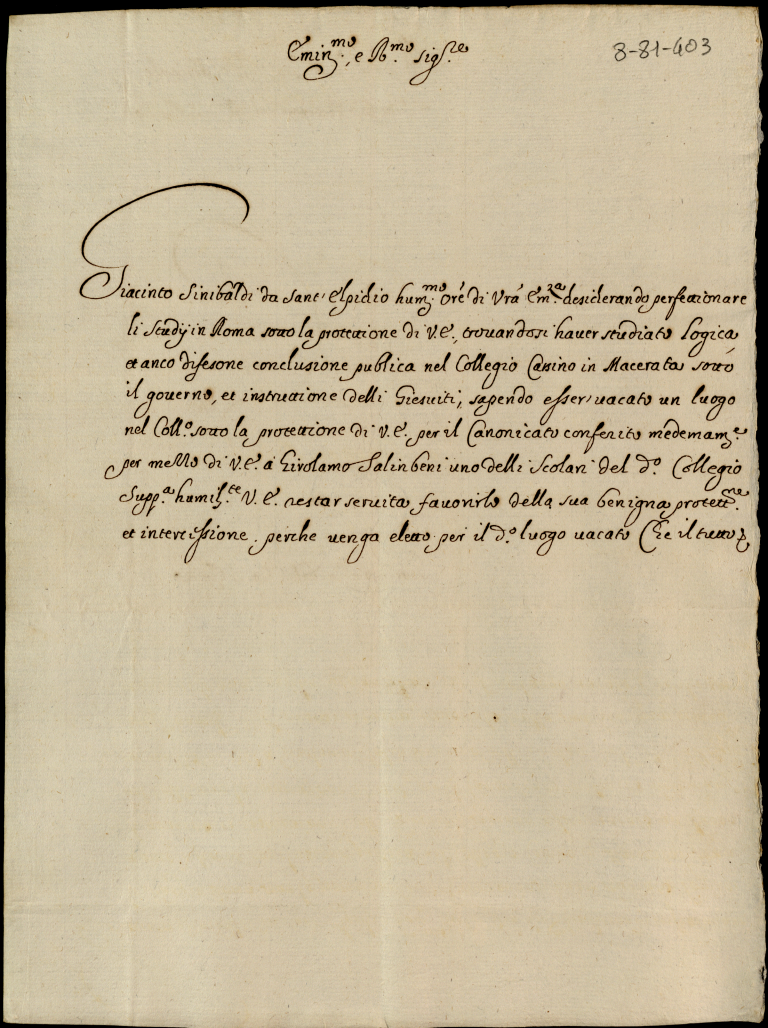 Emin.mo, e R.mo Sig.re
8-81-403
Giacinto Sinibaldi da Sant' Elpidio hum.mo Ore di Vra Em.za desiderando perfettionare
li studij in Roma sotto la protettione di V.E., trovandosi haver studiato Logica,
et anco difesone conclusione publica nel Collegio Cassino in Macerata sotto
il governo, et instruttione delli Giesuiti; sapendo esser' vacato un luogo
nel Coll.o sotto la protettione di V.E. per il Canonicato conferito medemam.e
per mezzo di V.E. à Girolamo Salinbeni uno delli Scolari del d.o Collegio
Supp.a humil.te V.E. restar servita favorirlo della sua benigna protett.ne
et intercessione. perche venga eletto per il d.o luogo vacato Che il tutto